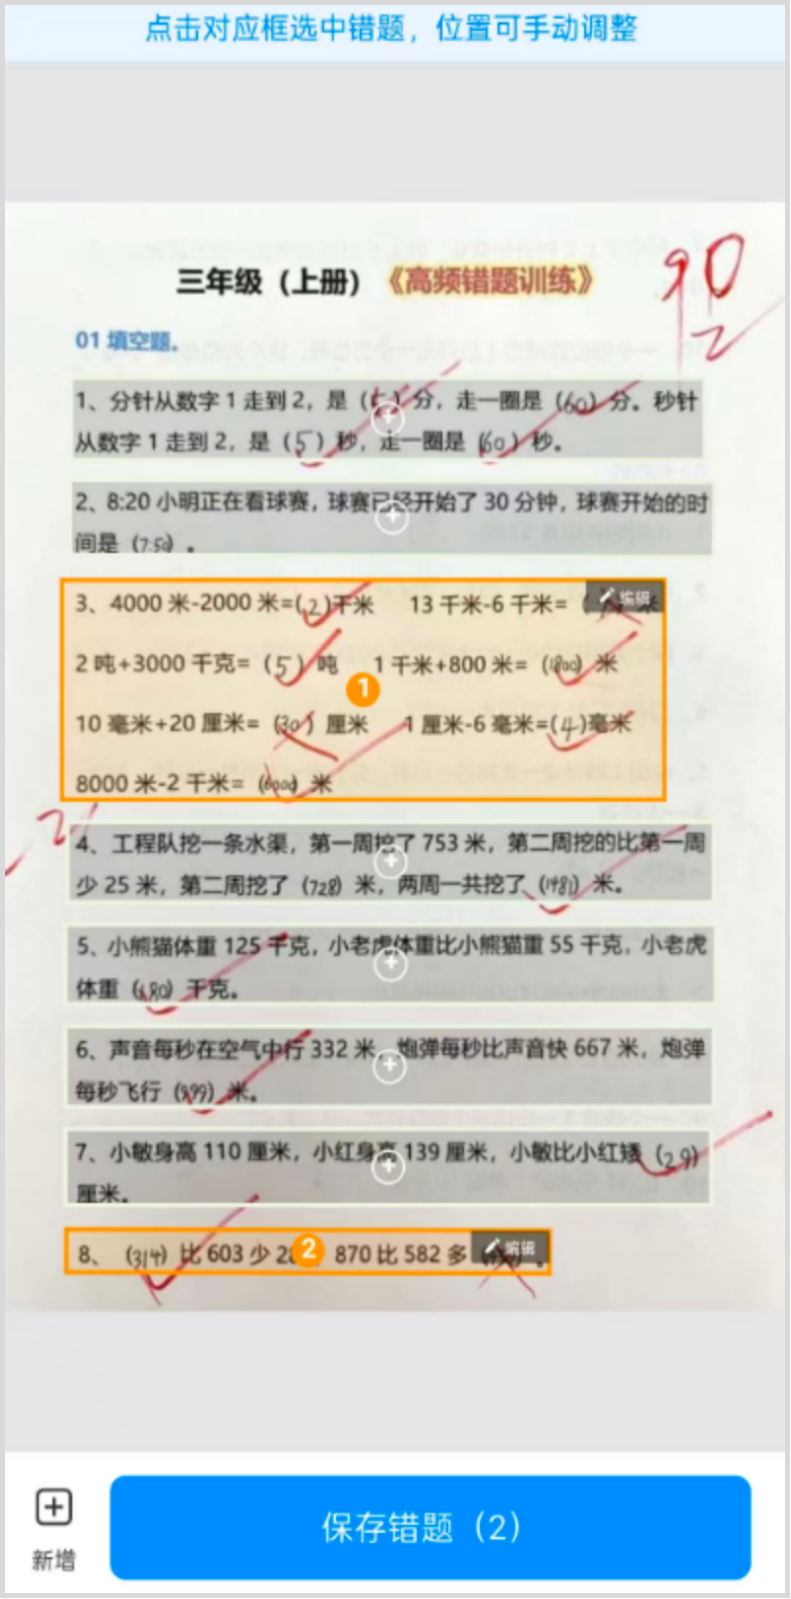 点击对应框选中错题，位置可手动调整
90
2
三年级（上册）《高频错题训练》
01 填空题。
1、分针从数字 1 走到 2，是（）分，走一圈是（60）分。秒针
从数字 1 走到 2，是（5）秒，走一圈是（60）秒。
2、8:20 小明正在看球赛，球赛已经开始了 30 分钟，球赛开始的时
间是（7:50）。
3、4000 米-2000 米=(2)千米 13 千米-6 千米=（ 编辑 米
2 吨+3000 千克=（5）吨 1 千米+800 米=（1800）米
1
10 毫米+20 厘米=（30）厘米 1 厘米-6 毫米=(4)毫米
8000 米-2 千米=（6000）米
4、工程队挖一条水渠，第一周挖了 753 米，第二周挖的比第一周
少 25 米，第二周挖了（728）米，两周一共挖了（1481）米。
5、小熊猫体重 125 千克，小老虎体重比小熊猫重 55 千克，小老虎
体重（180）千克。
6、声音每秒在空气中行 332 米，炮弹每秒比声音快 667 米，炮弹
每秒飞行（999）米。
7、小敏身高 110 厘米，小红身高 139 厘米，小敏比小红矮（29）
厘米。
8、（314）比 603 少 2 2 870 比 582 多 编辑 。
新增
保存错题（2）